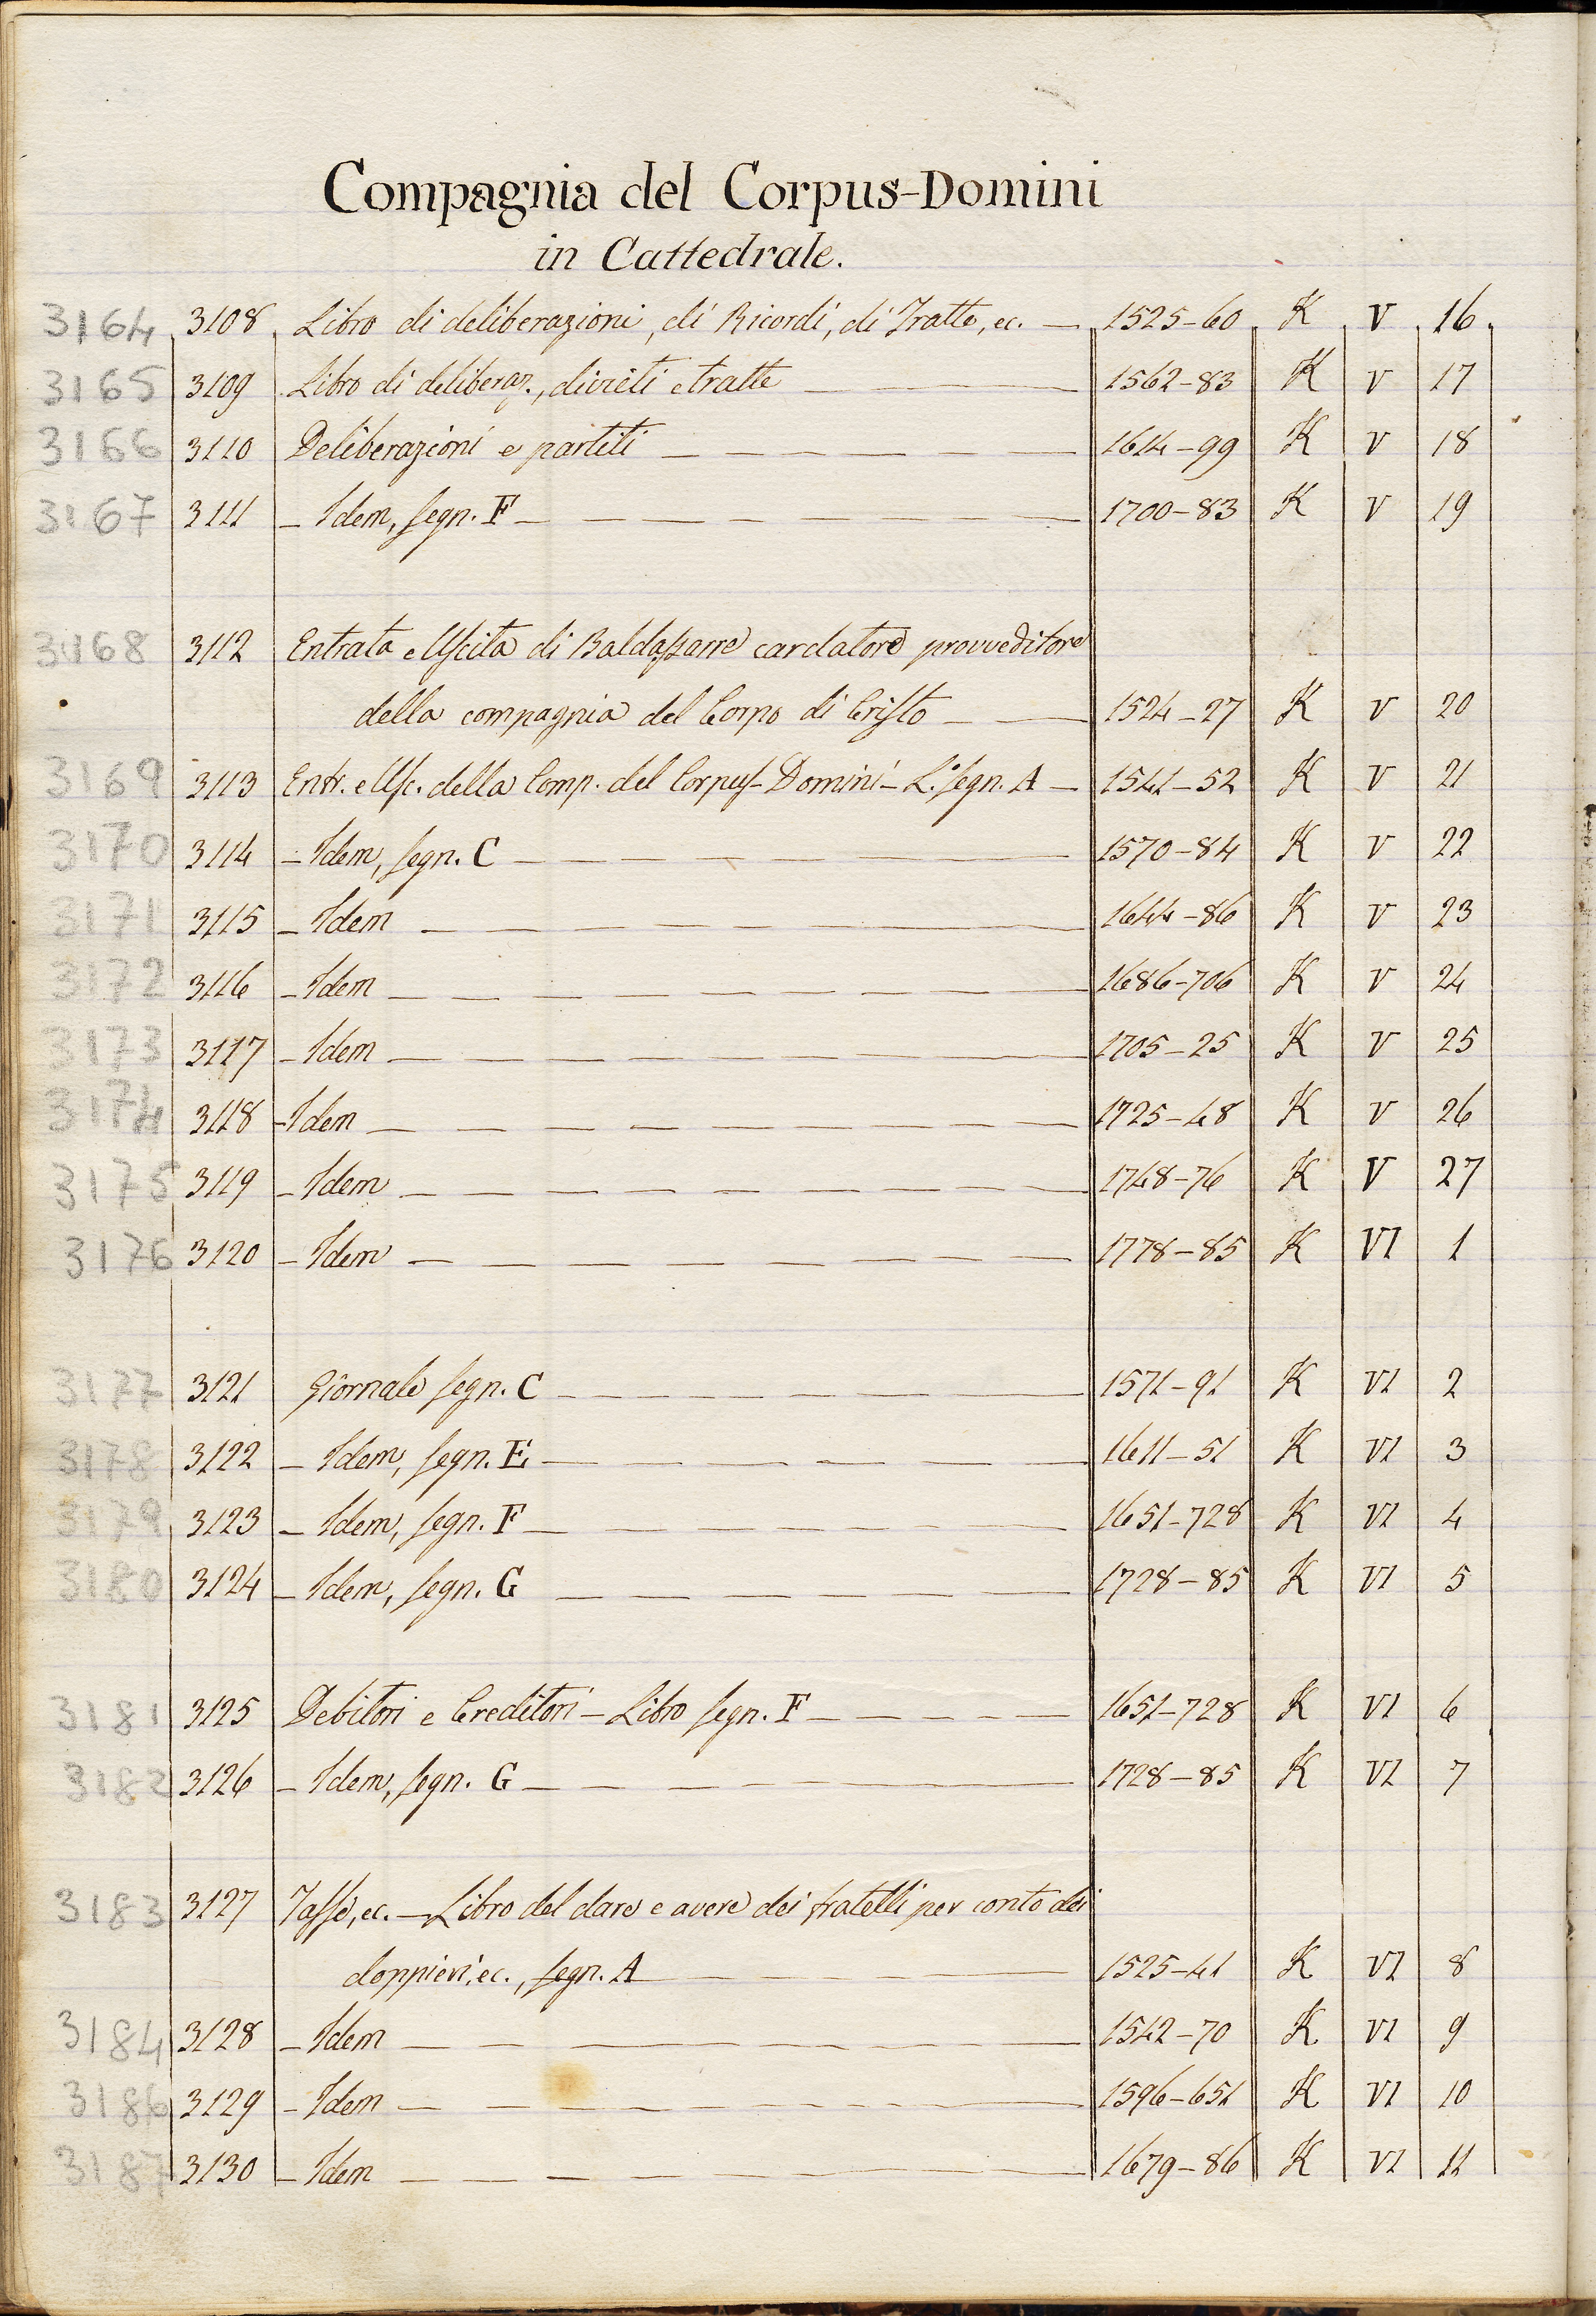 Compagnia del Corpus-Domini
in Cattedrale.
3164 3108 Libro di deliberazioni, di Ricordi, di Tratte, ec. — 1525-60 K V 16
3165 3109 Libro di deliberaz., divieti e tratte 1562-83 K V 17
3166 3110 Deliberazioni e partiti 1614-99 K V 18
3167 3111 – Idem, segn. F 1700-83 K V 19
3168 3112 Entrata e Uscita di Baldassarre cardatore provveditore
della compagnia del Corpo di Cristo 1524-27 K V 20
3169 3113 Entr. e Usc. della Comp. del Corpus-Domini – L.° segn. A 1541-52 K V 21
3170 3114 – Idem, segn. C 1570-84 K V 22
3171 3115 – Idem 1644-86 K V 23
3172 3116 – Idem 1686-706 K V 24
3173 3117 – Idem 1705-25 K V 25
3174 3118 – Idem 1725-48 K V 26
3175 3119 – Idem 1748-76 K V 27
3176 3120 – Idem 1778-85 K VI 1
3177 3121 Giornale segn. C 1571-91 K VI 2
3178 3122 – Idem, segn. E 1611-51 K VI 3
3179 3123 – Idem, segn. F 1651-728 K VI 4
3180 3124 – Idem, segn. G 1728-85 K VI 5
3181 3125 Debitori e Creditori – Libro segn. F 1651-728 K VI 6
3182 3126 – Idem, segn. G 1728-85 K VI 7
3183 3127 Tasse, ec. – Libro del dare e avere dei fratelli per conto dei
doppieri, ec., segn. A 1525-41 K VI 8
3184 3128 – Idem 1542-70 K VI 9
3186 3129 – Idem 1596-651 K VI 10
3187 3130 – Idem 1679-86 K VI 11